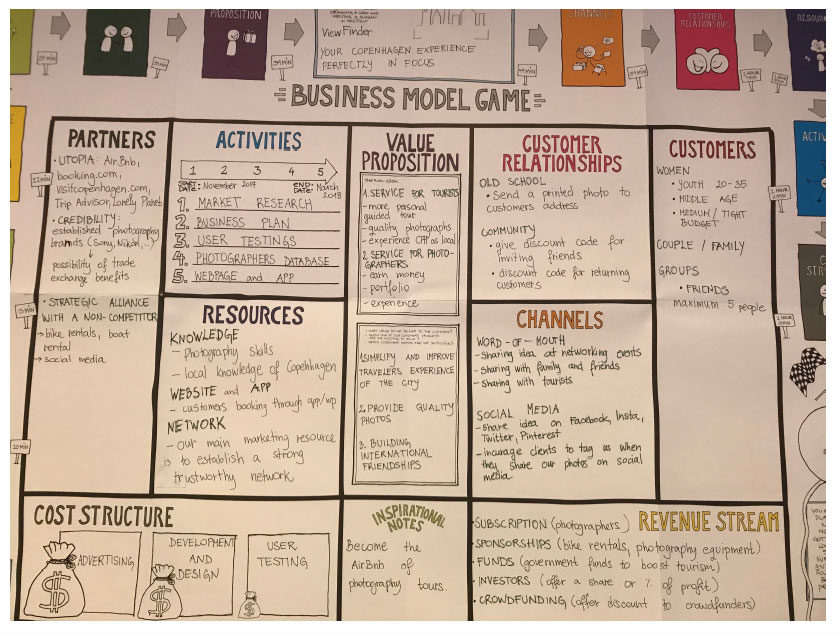 PROPOSITION
CHANNELS
CUSTOMER
RELATIONSHIPS
View Finder
YOUR COPENHAGEN EXPERIENCE
PERFECTLY IN FOCUS
1 HOUR
BUSINESS MODEL GAME
PARTNERS
• UTOPIA: AirBnb,
booking.com,
visitcopenhagen.com,
Trip Advisor, Lonely Planet
• CREDIBILITY:
established photography
brands (Sony, Nikon,...)
possibility of trade
exchange benefits
• STRATEGIC ALLIANCE
WITH A NON-COMPETITOR
→ bike rentals, boat
rental
→ social media
ACTIVITIES
1 2 3 4 5
START DATE: November 2017
END DATE: March 2018
1. MARKET RESEARCH
2. BUSINESS PLAN
3. USER TESTINGS
4. PHOTOGRAPHERS DATABASE
5. WEBPAGE and APP
RESOURCES
KNOWLEDGE
– photography skills
– local knowledge of Copenhagen
WEBSITE and APP
– customers booking through app/wp
NETWORK
– Our main marketing resource
is to establish a strong
trustworthy network
VALUE
PROPOSITION
1. SERVICE FOR TOURISTS
– more personal
guided tour
– quality photographs
– experience CPH as local
2. SERVICE FOR PHOTO-
GRAPHERS
– earn money
– portfolio
– experience
1. SIMPLIFY AND IMPROVE
TRAVELERS EXPERIENCE
OF THE CITY
2. PROVIDE QUALITY
PHOTOS
3. BUILDING
INTERNATIONAL
FRIENDSHIPS
CUSTOMER
RELATIONSHIPS
OLD SCHOOL
• Send a printed photo to
customers address
COMMUNITY
• give discount code for
inviting friends
• discount code for returning
customers
CHANNELS
WORD-OF-MOUTH
– sharing idea at networking events
– sharing with family and friends
– sharing with tourists
SOCIAL MEDIA
– share idea on Facebook, Insta,
Twitter, Pinterest
– incurage clients to tag us when
they share our photos on social
media
CUSTOMERS
WOMEN
• YOUTH 20-35
• MIDDLE AGE
• MEDIUM / TIGHT
BUDGET
COUPLE / FAMILY
GROUPS
• FRIENDS
maximum 5 people
COST STRUCTURE
ADVERTISING
DEVELOPMENT
AND
DESIGN
USER
TESTING
$
$
$
INSPIRATIONAL
NOTES
Become the
AirBnb of
photography tours.
REVENUE STREAM
• SUBSCRIPTION (photographers)
• SPONSORSHIPS (bike rentals, photography equipment)
• FUNDS (government funds to boost tourism)
• INVESTORS (offer a share or % of profit)
• CROWDFUNDING (offer discount to crowdfunders)